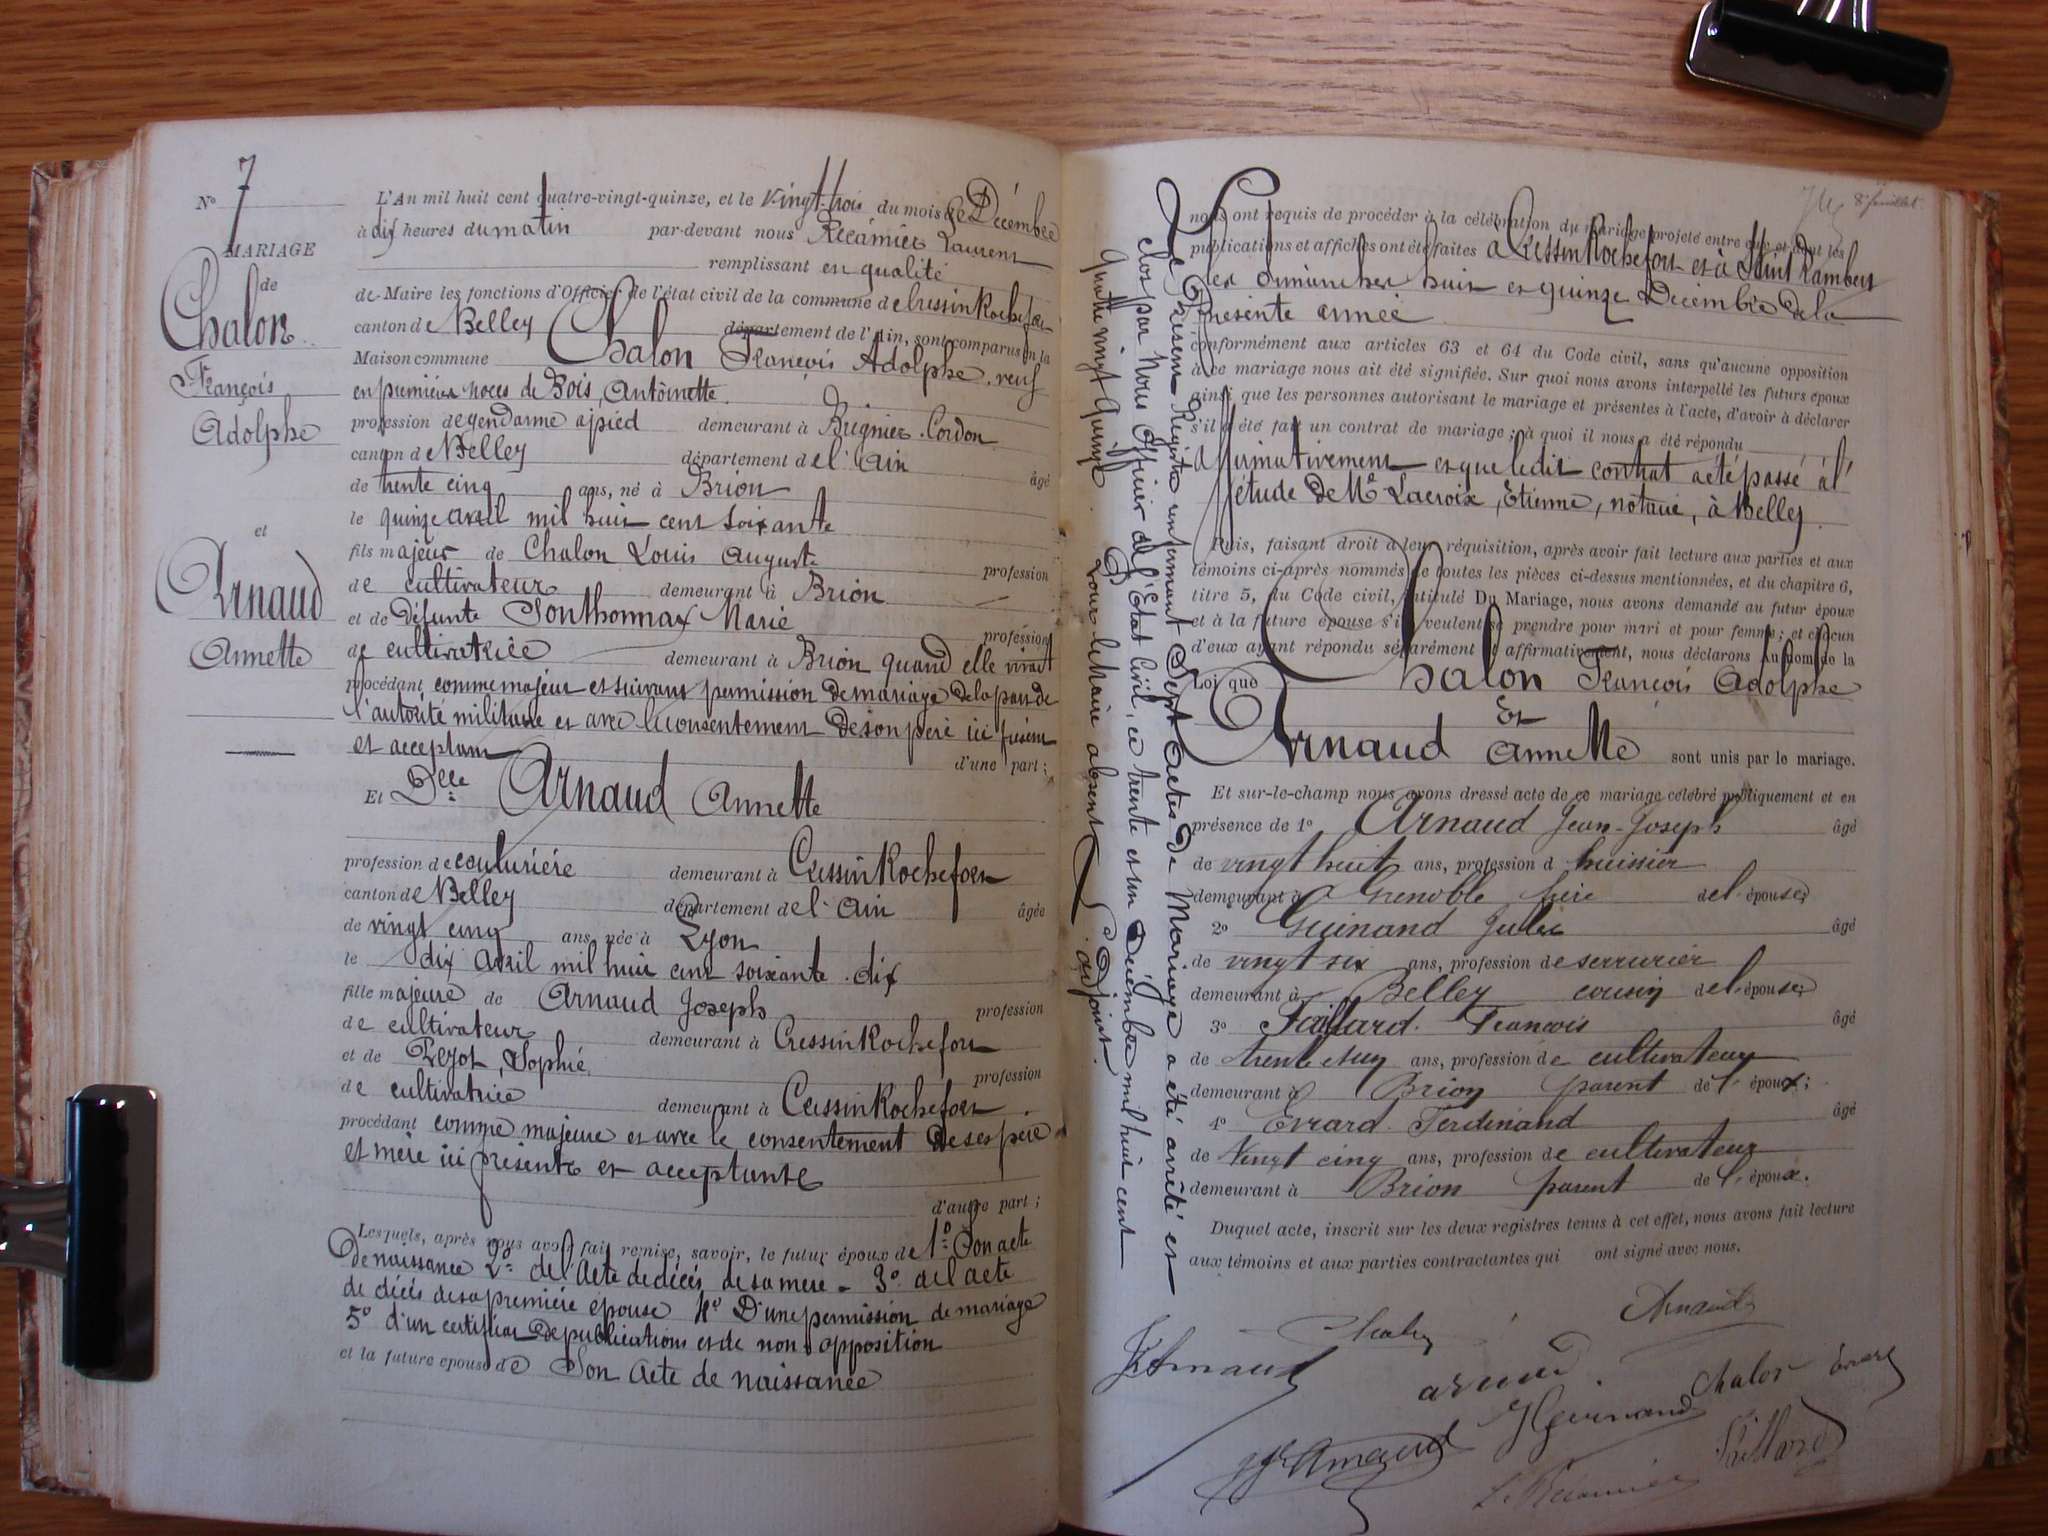 N° 7
MARIAGE
de
Chalon
François
Adolphe
et
Arnaud
Annette
L'An mil huit cent quatre-vingt-quinze, et le Vingt-trois du mois de Décembre
à dix heures du matin par-devant nous Récamier Laurent
remplissant en qualité
de Maire les fonctions d'Officier de l'état civil de la commune de Cressin Rochefort
canton de Belley département de l'Ain, sont comparus en la
Maison commune Chalon François Adolphe, veuf
en premières noces de Bois, Antoinette
profession de gendarme à pied demeurant à Brégnier-Cordon
canton de Belley département de l'Ain âgé
de trente cinq ans, né à Brion
le quinze avril mil huit cent soixante
fils majeur de Chalon Louis Auguste profession
de cultivateur demeurant à Brion
et de Défunte Sonthonnax Marie profession
de cultivatrice demeurant à Brion quand elle vivait
procédant comme majeur et suivant permission de mariage de la part de
l'autorité militaire et avec le consentement de son père ici présent
et acceptant d'une part ;
Et Delle Arnaud Annette
profession de couturière demeurant à Cressin Rochefort
canton de Belley département de l'Ain âgée
de vingt cinq ans, née à Lyon
le dix avril mil huit cent soixante-dix
fille majeure de Arnaud Joseph profession
de cultivateur demeurant à Cressin Rochefort
et de Peyot, Sophie profession
de cultivatrice demeurant à Cressin Rochefort
procédant comme majeure et avec le consentement de ses père
et mère ici présents et acceptants
d'autre part ;
Lesquels, après nous avoir fait remise, savoir, le futur époux de 1° Son acte
de naissance 2° de l'acte de décès de sa mère - 3° de l'acte
de décès de sa première épouse 4° D'une permission de mariage
5° d'un certificat de publications et de non opposition
et la future épouse de Son Acte de naissance
8e feuillet
nous ont requis de procéder à la célébration du mariage projeté entre eux et dont les
publications et affiches ont été faites à Cressin Rochefort et à Saint Rambert
les dimanches huit et quinze Décembre de la
présente année
conformément aux articles 63 et 64 du Code civil, sans qu'aucune opposition
à ce mariage nous ait été signifiée. Sur quoi nous avons interpellé les futurs époux
ainsi que les personnes autorisant le mariage et présentes à l'acte, d'avoir à déclarer
s'il a été fait un contrat de mariage ; à quoi il nous a été répondu
affirmativement et que ledit contrat a été passé à l'
étude de Me Lacroix, Etienne, notaire, à Belley
Puis, faisant droit à leur réquisition, après avoir fait lecture aux parties et aux
témoins ci-après nommés de toutes les pièces ci-dessus mentionnées, et du chapitre 6,
titre 5, du Code civil, intitulé Du Mariage, nous avons demandé au futur époux
et à la future épouse s'ils veulent se prendre pour mari et pour femme ; et chacun
d'eux ayant répondu séparément et affirmativement, nous déclarons au nom de la
Loi que Chalon François Adolphe
Et
Arnaud Annette sont unis par le mariage.
Et sur-le-champ nous avons dressé acte de ce mariage célébré publiquement et en
présence de 1° Arnaud Jean-Joseph âgé
de vingt huit ans, profession d huissier
demeurant à Grenoble frère de l'épouse
2° Guinand Jules âgé
de vingt six ans, profession de serrurier
demeurant à Belley cousin de l'épouse
3° Taillard François âgé
de trente un ans, profession de cultivateur
demeurant à Brion parent de l'époux ;
4° Evrard Ferdinand âgé
de Vingt cinq ans, profession de cultivateur
demeurant à Brion parent de l'époux.
Duquel acte, inscrit sur les deux registres tenus à cet effet, nous avons fait lecture
aux témoins et aux parties contractantes qui ont signé avec nous.
Chalon
Arnaud
Arnaud
Chalon
Evrard
Guinand
Arnaud
Récamier
Le Présent Registre renfermant Sept Actes de Mariage a été arrêté et
clos par Nous Officier de l'Etat Civil, ce trente et un Décembre mil huit cent
Quatre vingt Quinze
Pour le Maire absent
L'adjoint.
Arnaud